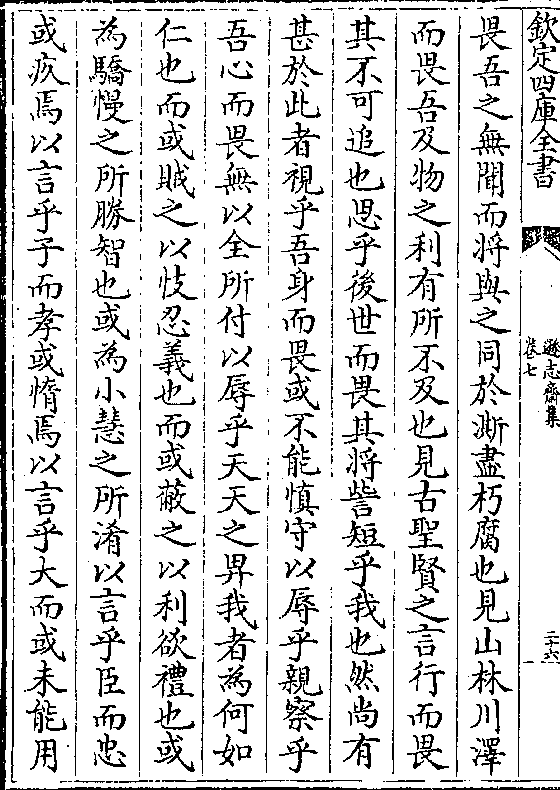 欽定四庫全書
遜志齋集
卷七
二十六
畏吾之無聞而將與之同於澌盡朽腐也見山林川澤
而畏吾及物之利有所不及也見古聖賢之言行而畏
其不可追也思乎後世而畏其將訾短乎我也然尚有
甚於此者視乎吾身而畏或不能慎守以辱乎親察乎
吾心而畏無以全所付以辱乎天天之畀我者為何如
仁也而或賊之以忮忍義也而或蔽之以利欲禮也或
為驕慢之所勝智也或為小慧之所淆以言乎臣而忠
或疚焉以言乎子而孝或惰焉以言乎大而或未能用